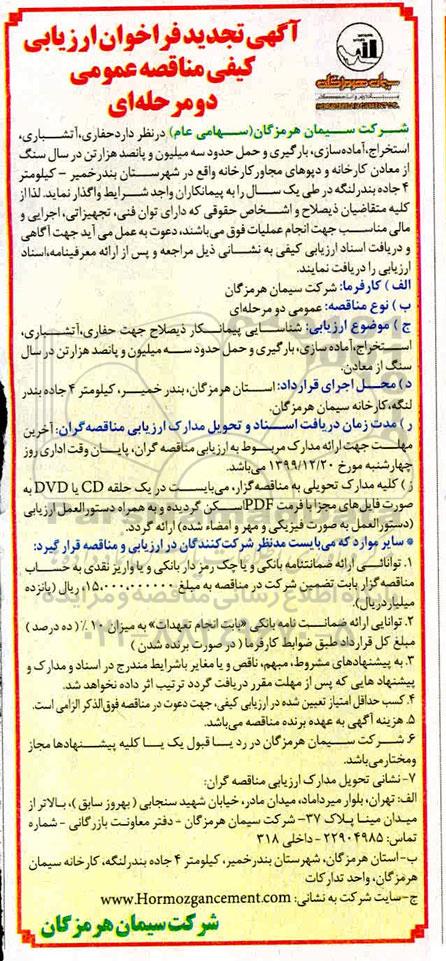 آگهی تجدید فراخوان ارزیابی
کیفی مناقصه عمومی
دو مرحله‌ای
سیمان هرمزگان
شرکت سیمان هرمزگان(سهامی عام) در نظر دارد حفاری، آتشباری،
استخراج، آماده‌سازی، بارگیری و حمل حدود سه میلیون و پانصد هزار تن در سال سنگ
از معادن کارخانه و دپوهای مجاور کارخانه واقع در شهرستان بندرخمیر – کیلومتر
۴ جاده بندرلنگه در طی یک سال را به پیمانکاران واجد شرایط واگذار نماید. لذا از
کلیه متقاضیان ذیصلاح و اشخاص حقوقی که دارای توان فنی، تجهیزاتی، اجرایی و
مالی مناسب جهت انجام عملیات فوق می‌باشند، دعوت به عمل می آید جهت آگاهی
و دریافت اسناد ارزیابی کیفی به نشانی ذیل مراجعه و پس از ارائه معرفینامه، اسناد
ارزیابی را دریافت نمایند.
الف ) کارفرما: شرکت سیمان هرمزگان
ب ) نوع مناقصه: عمومی دو مرحله‌ای
ج ) موضوع ارزیابی: شناسایی پیمانکار ذیصلاح جهت حفاری، آتشباری،
استخراج، آماده سازی، بارگیری و حمل حدود سه میلیون و پانصد هزار تن در سال
سنگ از معادن.
د ) محل اجرای قرارداد: استان هرمزگان، بندر خمیر، کیلومتر ۴ جاده بندر
لنگه، کارخانه سیمان هرمزگان.
ر ) مدت زمان دریافت اسناد و تحویل مدارک ارزیابی مناقصه گران: آخرین
مهلت جهت ارائه مدارک مربوط به ارزیابی مناقصه گران، پایان وقت اداری روز
چهارشنبه مورخ ۱۳۹۹/۱۲/۲۰ می‌باشد.
ز ) کلیه مدارک تحویلی به مناقصه‌گزار، می‌بایست در یک حلقه CD یا DVD به
صورت فایل‌های مجزا با فرمت PDF اسکن گردیده و به همراه دستورالعمل ارزیابی
(دستورالعمل به صورت فیزیکی و مهر و امضاء شده) ارائه گردد.
* سایر موارد که می‌بایست مدنظر شرکت‌کنندگان در ارزیابی و مناقصه قرار گیرد:
۱. توانائی ارائه ضمانتنامه بانکی و یا چک رمز دار بانکی و یا واریز نقدی به حساب
مناقصه گزار بابت تضمین شرکت در مناقصه به مبلغ ۱۵،۰۰۰،۰۰۰،۰۰۰ ریال (پانزده
میلیارد ریال).
۲. توانایی ارائه ضمانت نامه بانکی «بابت انجام تعهدات» به میزان ۱۰٪ (ده درصد )
مبلغ کل قرارداد طبق ضوابط کارفرما ( در صورت برنده شدن )
۳. به پیشنهادهای مشروط، مبهم، ناقص و یا مغایر باشرایط مندرج در اسناد و مدارک و
پیشنهاد هایی که پس از مهلت مقرر دریافت گردد ترتیب اثر داده نخواهد شد.
۴. کسب حداقل امتیاز تعیین شده در ارزیابی کیفی، جهت دعوت در مناقصه فوق‌الذکر الزامی است.
۵. هزینه آگهی به عهده برنده مناقصه می‌باشد.
۶. شرکت سیمان هرمزگان در رد یا قبول یک یا کلیه پیشنهادها مجاز
ومختار می‌باشد.
۷- نشانی تحویل مدارک ارزیابی مناقصه گران:
الف: تهران، بلوار میرداماد، میدان مادر، خیابان شهید سنجابی ( بهروز سابق )، بالاتر از
میدان مینا پلاک ۳۷- شرکت سیمان هرمزگان - دفتر معاونت بازرگانی - شماره
تماس: ۲۲۹۰۴۹۸۵ - داخلی ۳۱۸
ب- استان هرمزگان، شهرستان بندرخمیر، کیلومتر ۴ جاده بندرلنگه، کارخانه سیمان
هرمزگان، واحد تدارکات
ج- سایت شرکت به نشانی: www.Hormozgancement.com
شرکت سیمان هرمزگان